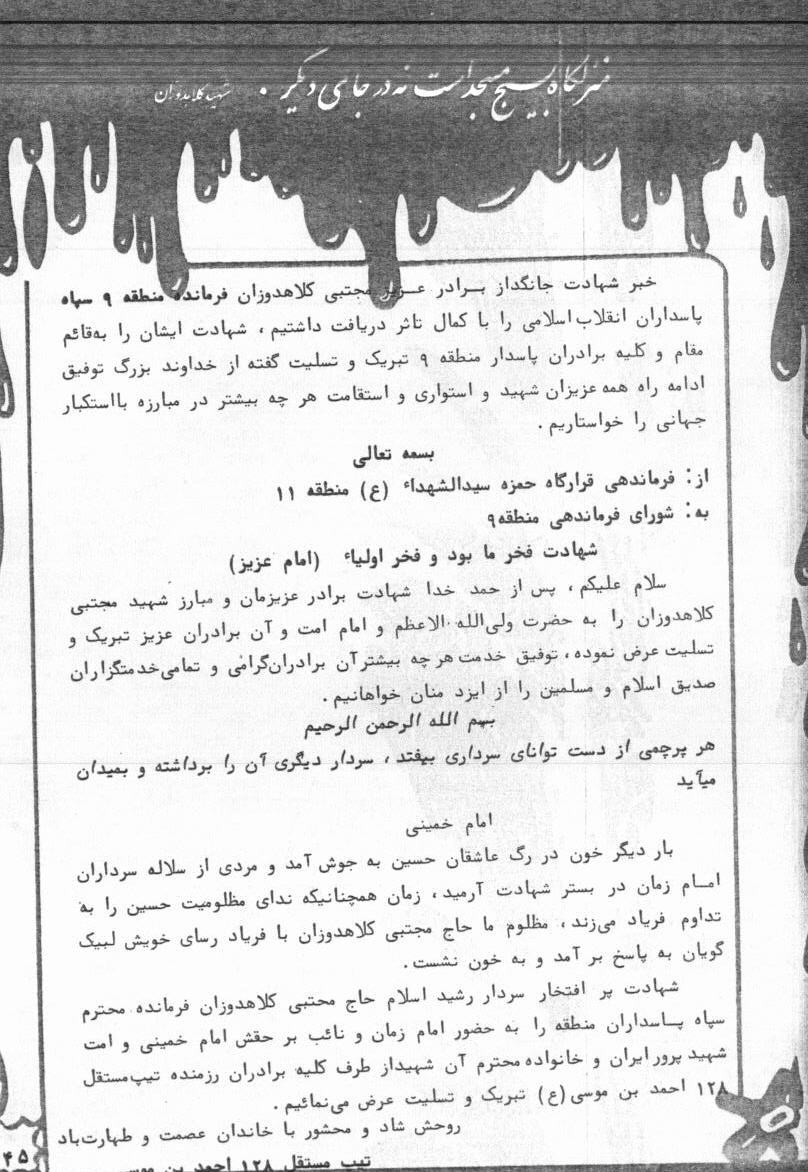 منزلگاه بسیج مسجد است نه در جای دیگر . شهید کلاهدوزان
خبر شهادت جانگداز بــرادر عــزیز مجتبی کلاهدوزان فرمانده منطقه ۹ سپاه
پاسداران انقلاب اسلامی را با کمال تاثر دریافت داشتیم ، شهادت ایشان را به‌قائم
مقام و کلیه برادران پاسدار منطقه ۹ تبریک و تسلیت گفته از خداوند بزرگ توفیق
ادامه راه همه عزیزان شهید و استواری و استقامت هر چه بیشتر در مبارزه بااستکبار
جهانی را خواستاریم .
بسمه تعالی
از: فرماندهی قرارگاه حمزه سیدالشهداء (ع) منطقه ۱۱
به: شورای فرماندهی منطقه۹
شهادت فخر ما بود و فخر اولیاء (امام عزیز)
سلام علیکم ، پس از حمد خدا شهادت برادر عزیزمان و مبارز شهید مجتبی
کلاهدوزان را به حضرت ولی‌الله الاعظم و امام امت و آن برادران عزیز تبریک و
تسلیت عرض نموده ، توفیق خدمت هر چه بیشتر آن برادران‌گرامی و تمامی‌خدمتگزاران
صدیق اسلام و مسلمین را از ایزد منان خواهانیم .
بسم الله الرحمن الرحیم
هر پرچمی از دست توانای سرداری بیفتد ، سردار دیگری آن را برداشته و بمیدان
میآید
امام خمینی
بار دیگر خون در رگ عاشقان حسین به جوش آمد و مردی از سلاله سرداران
امــام زمان در بستر شهادت آرمید ، زمان همچنانیکه ندای مظلومیت حسین را به
تداوم فریاد می‌زند ، مظلوم ما حاج مجتبی کلاهدوزان با فریاد رسای خویش لبیک
گویان به پاسخ بر آمد و به خون نشست .
شهادت پر افتخار سردار رشید اسلام حاج محتبی کلاهدوزان فرمانده محترم
سپاه پــاسداران منطقه را به حضور امام زمان و نائب بر حقش امام خمینی و امت
شهید پرور ایران و خانواده محترم آن شهیداز طرف کلیه برادران رزمنده تیپ‌مستقل
۱۲۸ احمد بن موسی (ع) تبریک و تسلیت عرض می‌نمائیم .
روحش شاد و محشور با خاندان عصمت و طهارت‌باد
تیپ مستقل ۱۲۸ احمد بن موسی
۴۵